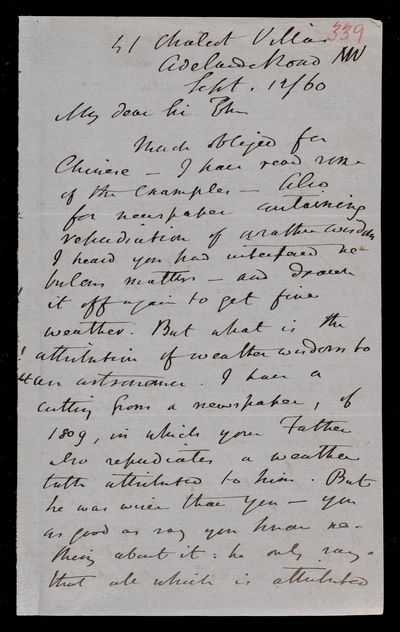 339
41 Chalcot Villas
Adelaide Road NW
Sept. 12/60
My dear Sir John
Much obliged for
Chinese — I have read some
of the examples — Also
for newspaper containing
repudiation of weather wisdom
I heard you had interfered ne-
bulous matters — and drawn
it off again to get fine
weather. But what is the
! attribution of weather wisdom to
an astronomer. I have a
cutting from a newspaper, of
1809, in which your Father
also repudiates a weather
table attributed to him. But
he was wiser than you — you
as good as say you know no-
thing about it: he only says
that all which is attributed